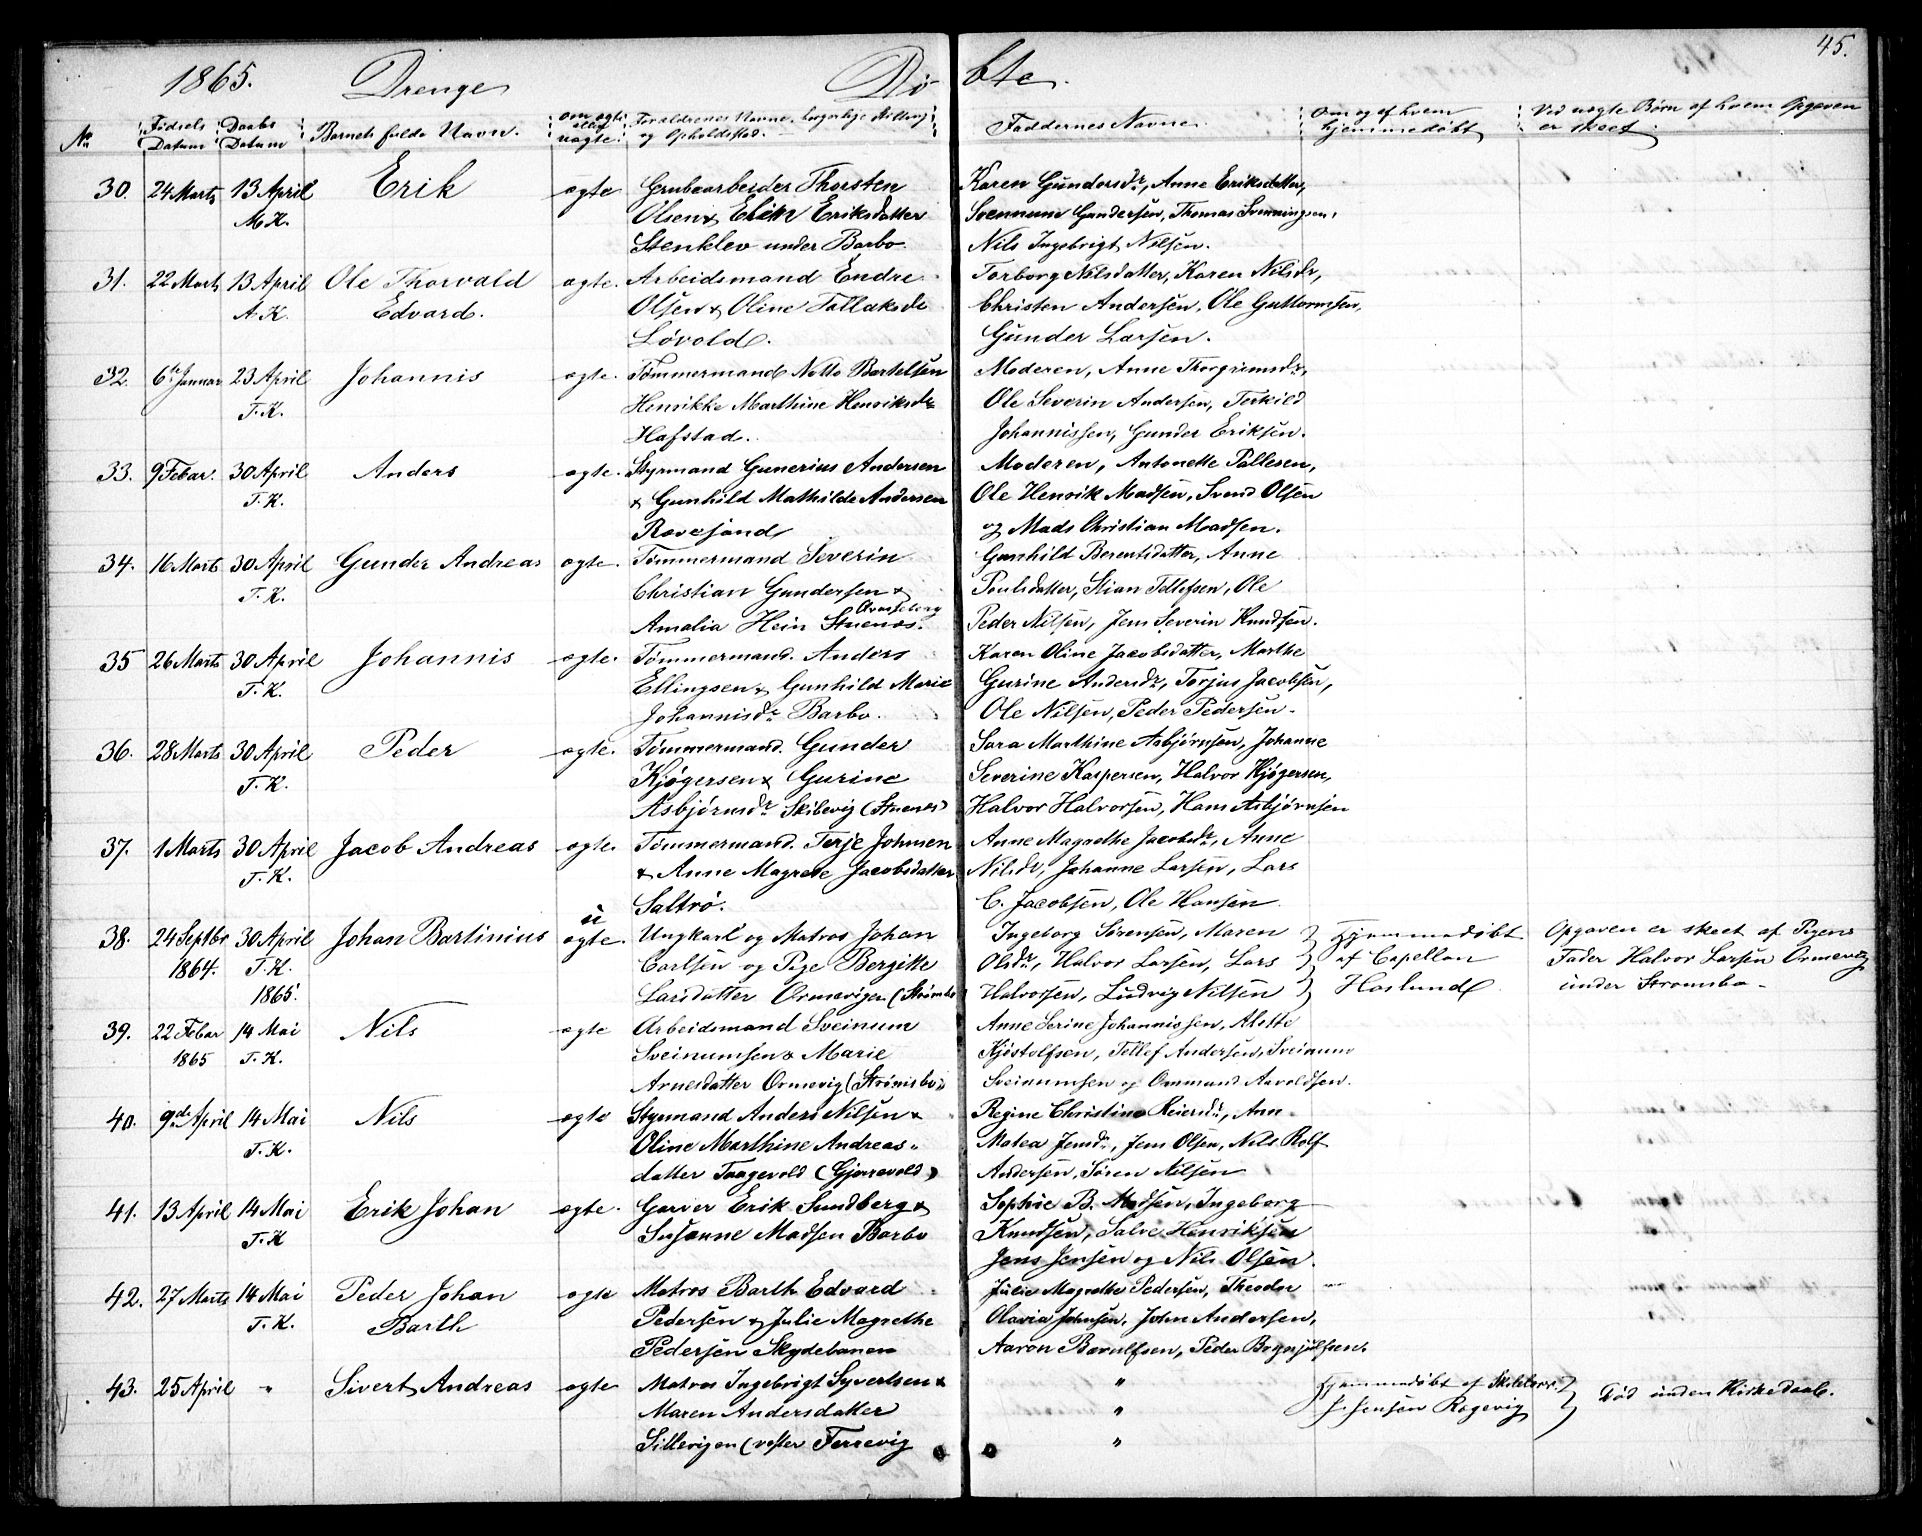 45.
1865. Drenge Dø- bte.
No Fødsels Datum Daabs Datum Barnets fulde Navn. om ægte eller uægte. Forældrenes Navne, borgerlige Stilling og Opholdssted. Faddernes Navne Om og af hvem hjemmedøbt Ved uægte Børn af hvem Opgaven er skeet
30. 24 Marts 13 April Erik ægte Grubearbeider Thorsten Karen Gundersdr, Anne Eriksdatter,
M.K. Olsen & Elen Eriksdatter Svennum Gundersen, Thomas Svenningsen,
Stenklev under Barbo Nils Ingebrigt Nilsen.
31. 22 Marts 13 April Ole Thorvald ægte. Arbeidsmand Endre Torborg Nilsdatter, Karen Nilsdr,
A.K. Edvard. Olsen & Oline Tallaksdr Christen Andersen, Ole Guttormsen,
Løvold. Gunder Larsen.
32. 6te Januar 23 April Johannis ægte. Tømmermand Notto Bertelsen Moderen, Anne Thorgrimsdr,
T.K. Henrikke Marthine Henriksdr Ole Severin Andersen, Torkild
Hafstad. Johannissen, Gunder Eriksen.
33. 9 Febar. 30 April Anders ægte. Styrmand Gunerius Andersen Moderen, Antonette Pallesen,
T.K. & Gunhild Mathilde Andersen Ole Henrik Madsen, Svend Olsen
Revesand og Mads Christian Madsen.
34. 16 Marts 30 April Gunder Andreas ægte. Tømmermand Severin Gunhild Berentsdatter, Anne
T.K. Christian Gundersen & Poulsdatter, Stian Tellefsen, Ole
Amalia Hein Stuenæs. Peder Nilsen, Jens Severin Knudsen.
35 26 Marts 30 April Johannis ægte. Tømmermand. Anders Karen Oline Jacobsdatter, Marthe
T.K. Ellingsen & Gunhild Marie Gurine Andersdr, Torjus Jacobsen,
Johannisdr Barbo. Ole Nilsen, Peder Pedersen.
36. 28 Marts 30 April Peder ægte. Tømmermand. Gunder Sara Marthine Asbjørnsen, Johanne
T.K. Kjøgersen & Gurine Severine Kaspersen, Halvor Kjøgersen,
Asbjørnsdr Skilevig (Stuenes) Halvor Halvorsen, Hans Asbjørnsen
37. 1 Marts 30 April Jacob Andreas ægte. Tømmermand. Terje Johnsen Anne Magrethe Jacobsdr, Anne
T.K. & Anne Magrete Jacobsdatter Nilsdr, Johanne Larsen, Lars
Saltrø. C. Jacobsen, Ole Hansen.
38. 24 Septbr 30 April Johan Bartinius uægte. Ungkarl og Matros Johan Ingeborg Sørensen, Maren Hjemmedøbt Opgaven er skeet af Pigens
1864. T.K. Carlsen og Pige Bergitte Olsdr, Halvor Larsen, Lars af Capellan Fader Halvor Larsen Ormevig
1865. Larsdatter Ormevigen (Strømsb Halvorsen, Ludvig Nilsen Haslund under Stromsbo
39. 22 Febar 14 Mai Nils ægte Arbeidsmand Sveinum Anne Serine Johannissen, Alette
1865 T.K. Sveinumsen & Marie Kjøstolfsen, Tellef Andersen, Sveinum
Arnesdatter Ormevig (Strømsbo) Sveinumsen og Ommund Aavoldsen.
40. 9de April 14 Mai Nils ægte Styrmand Anders Nilsen & Regine Christine Reiersdr, Ann
T.K. Oline Marthine Andreas- Matea Jensdr, Jens Olsen, Nils Rolf
datter Taagevold (Gjerrevold) Andersen, Søren Nilsen
41. 13 April 14 Mai Erik Johan ægte. Garver Erik Sundberg & Sophie B. Madsen, Ingeborg
T.K Susanne Madsen Barbo Knudsen, Salve Henriksen
Jens Jensen og Nils Olsen.
42. 27 Marts 14 Mai Peder Johan ægte Matros Barth Edvard Julie Magrethe Pedersen, Theodor
T.K. Barth Pedersen & Julie Magrethe Olavia Johnsen, John Andersen,
Pedersen Skydebanen Aaron Bervulfsen, Peder
43. 25 April " Sivert Andreas ægte Matros Ingebrigt Syvertsen & " Hjemmedøbt af
Maren Andersdatter " J. Jensen Ragevig Død inden Kirkedaab.
Sillevigen (vester Ferrevig "